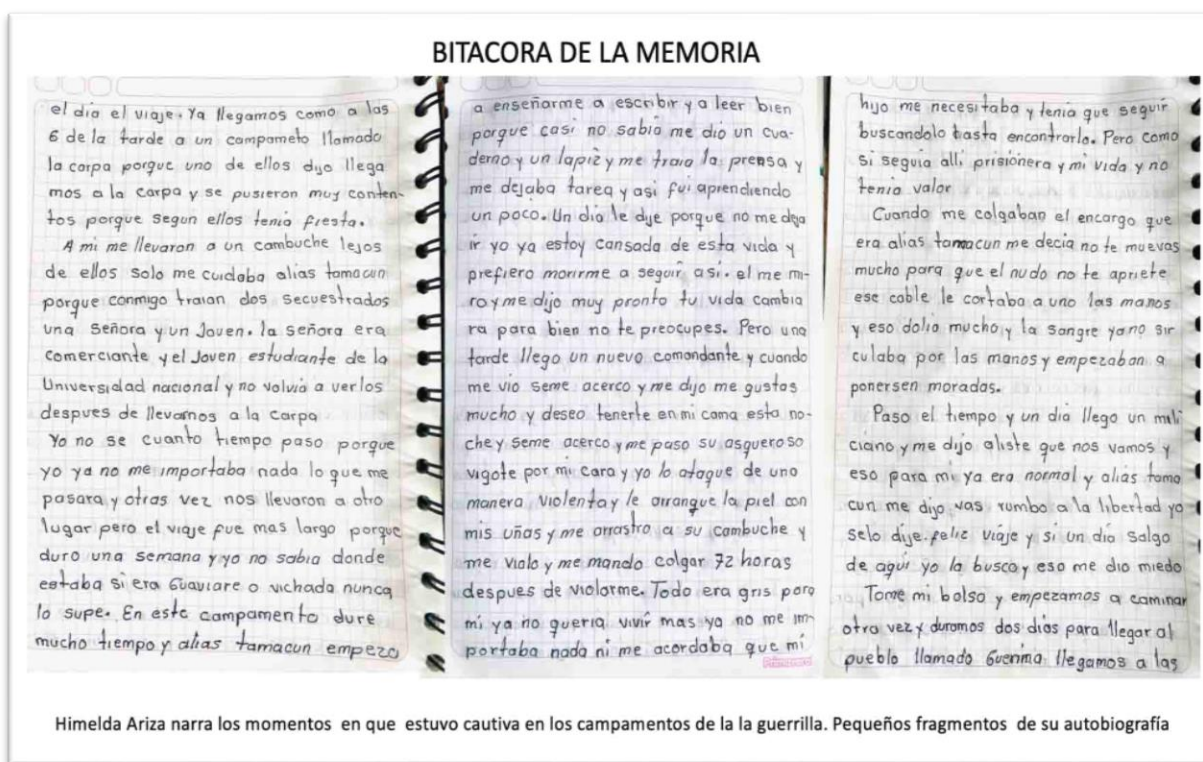 BITACORA DE LA MEMORIA
el dia el viaje. Ya llegamos como a las
6 de la tarde a un campameto llamado
la carpa porque uno de ellos dijo llega
mos a la Carpa y se pusieron muy conten-
tos porque segun ellos tenia fiesta.
A mi me llevaron a un cambuche lejos
de ellos solo me cuidaba alias tamacun
porque conmigo traian dos secuestrados
una señora y un Joven. la señora era
comerciante y el Joven estudiante de la
Universidad nacional y no volvia a verlos
despues de llevarnos a la Carpa
Yo no se cuanto tiempo paso porque
yo ya no me importaba nada lo que me
pasara y otras vez nos llevaron a otro
lugar pero el viaje fue mas largo porque
duro una semana y yo no sabia donde
estaba si era Guaviare o vichada nunca
lo supe. En este campamento dure
mucho tiempo y alias tamacun empezo
a enseñarme a escribir y a leer bien
porque casi no sabia me dio un cua-
derno y un lapiz y me traia la prensa y
me dejaba tarea y asi fui aprendiendo
un poco. Un dia le dije porque no me deja
ir yo ya estoy cansada de esta vida y
prefiero morirme a seguir asi. el me mi-
ro y me dijo muy pronto tu vida cambia
ra para bien no te preocupes. Pero una
tarde llego un nuevo comandante y cuando
me vio seme acerco y me dijo me gustas
mucho y deseo tenerte en mi cama esta no-
che y seme acerco y me paso su asqueroso
vigote por mi cara y yo lo ataque de uno
manera violenta y le arranque la piel con
mis uñas y me arrastro a su cambuche y
me violo y me mando colgar 72 horas
despues de violarme. Todo era gris para
mi ya no queria vivir mas ya no me im
portaba nada ni me acordaba que mi
hijo me necesitaba y tenia que seguir
buscandolo hasta encontrarlo. Pero como
si seguia alli prisionera y mi vida y no
tenia valor
Cuando me colgaban el encargo que
era alias tamacun me decia no te muevas
mucho para que el nudo no te apriete
ese cable le cortaba a uno las manos
y eso dolia mucho y la sangre ya no sir
culaba por las manos y empezaban a
ponersen moradas.
Paso el tiempo y un dia llego un mili
ciano y me dijo aliste que nos vamos y
eso para mi ya era normal y alias tama
cun me dijo vas rumbo a la libertad yo
selo dije. feliz viaje y si un dia salgo
de aqui yo la busco y eso me dio miedo
Tome mi bolso y empezamos a caminar
otra vez y duramos dos dias para llegar al
pueblo llamado Guerima llegamos a las
Himelda Ariza narra los momentos en que estuvo cautiva en los campamentos de la la guerrilla. Pequeños fragmentos de su autobiografía